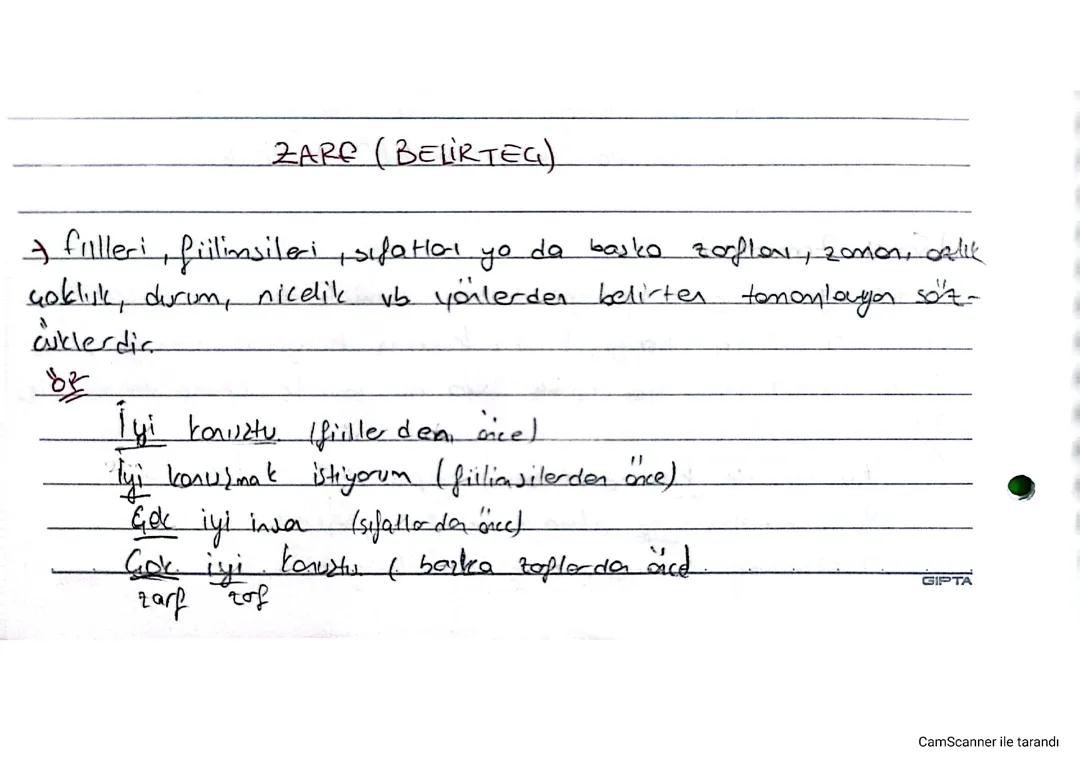 ZARF (BELİRTEÇ)
→ fiilleri, fiilimsileri, sıfatları ya da başka zarfları, zaman, azlık
çokluk, durum, nicelik vb yönlerden belirten tamamlayan söz-
cüklerdir.
ÖR
İyi konuştu (fiillerden önce)
İyi konuşmak istiyorum (fiilimsilerden önce)
Çok iyi insan (sıfatlardan önce)
Çok iyi konuştu (başka zarflardan önce)
zarf zarf
GIPTA
CamScanner ile tarandı